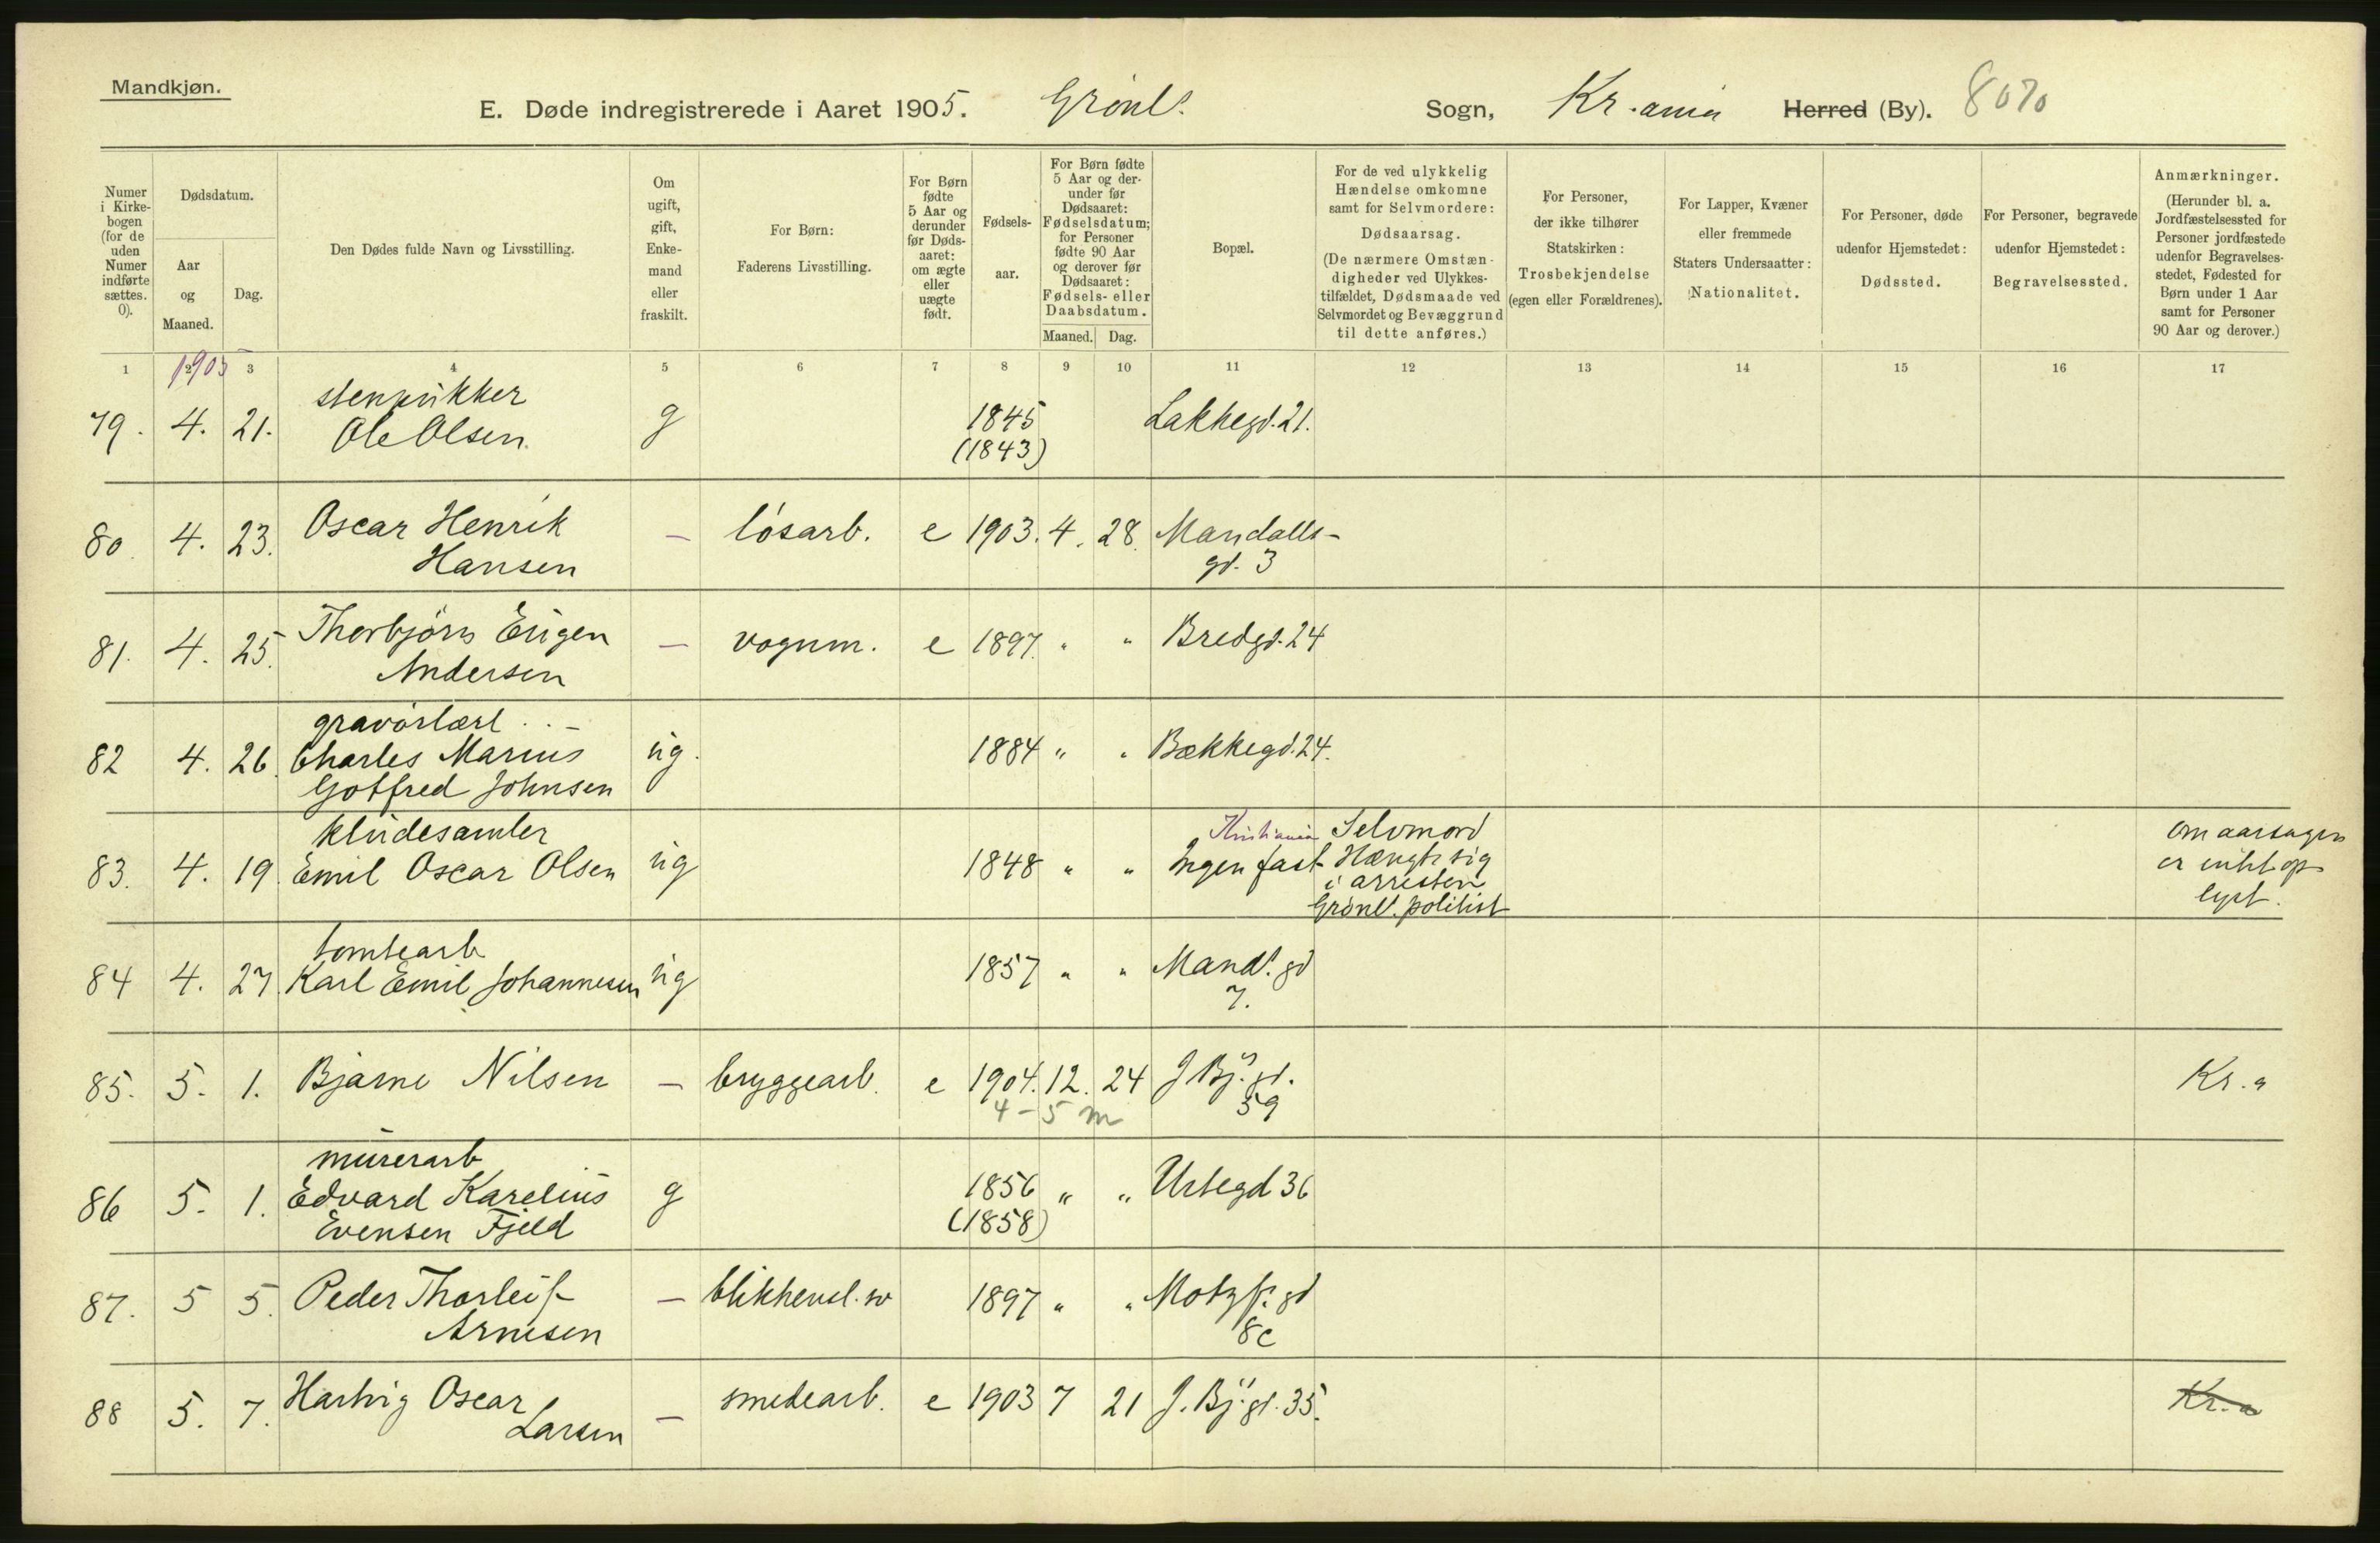 Mandkjøn.
E. Døde indregistrerede i Aaret 1905. Grønl. Sogn, Kr.ania Herred (By). 8070
Numer i Kirke-bogen (for de uden Numer indførte sættes. 0).
Dødsdatum.
Aar og Maaned.
Dag.
Den Dødes fulde Navn og Livsstilling.
Om ugift, gift, Enke-mand eller fraskilt.
For Børn:
Faderens Livsstilling.
For Børn fødte 5 Aar og derunder før Døds-aaret: om ægte eller uægte født.
Fødsels-aar.
For Børn fødte 5 Aar og der-under før Dødsaaret: Fødselsdatum; for Personer fødte 90 Aar og derover før Dødsaaret: Fødsels- eller Daabsdatum.
Maaned. Dag.
Bopæl.
For de ved ulykkelig Hændelse omkomne samt for Selvmordere: Dødsaarsag.
(De nærmere Omstæn-digheder ved Ulykkes-tilfældet, Dødsmaade ved Selvmordet og Bevæggrund til dette anføres.)
For Personer, der ikke tilhører Statskirken: Trosbekjendelse (egen eller Forældrenes).
For Lapper, Kvæner eller fremmede Staters Undersaatter: Nationalitet.
For Personer, døde udenfor Hjemstedet: Dødssted.
For Personer, begravede udenfor Hjemstedet: Begravelsessted.
Anmærkninger.
(Herunder bl. a. Jordfæstelsessted for Personer jordfæstede udenfor Begravelses-stedet, Fødested for Børn under 1 Aar samt for Personer 90 Aar og derover.)
1 2 3 4 5 6 7 8 9 10 11 12 13 14 15 16 17
1905
stenpukker
79. 4. 21. Ole Olsen g 1845 Lakkegd. 21.
(1843)
80. 4. 23. Oscar Henrik — løsarb. e 1903. 4. 28. Mandalls-
Hansen gd. 3
81. 4. 25. Thorbjørn Eugen — vognm. e 1897. " " Bredgd. 24
Andersen
gravørlærl
82 4. 26. Charles Marius ug. 1884 " " Bækkegd. 24.
Gotfred Johnsen
kludesamler Kristiania Selvmord Om aarsagen
83. 4. 19 Emil Oscar Olsen ug 1848 " " Ingen fast Hængte sig er intet op-
i arresten lyst.
Grønl. politist
tomtearb
84 4. 27. Karl Emil Johannesen ug 1857 " " Mand. gd
7.
85. 5. 1. Bjarne Nilsen — bryggearb. e 1904. 12. 24 J Bj. gd. Kr.a
4-5 m 59
murerarb
86 5. 1. Edvard Karelius g 1856 " " Urtegd 36
Evensen Fjeld (1858)
87. 5 5. Peder Thorleif — blikkensl. sv 1897 " " Motzf. gd
Arnesen 8c
88 5. 7. Hartvig Oscar — smedearb. e 1903 7 21 J. Bj. gd. 35. Kr.a
Larsen